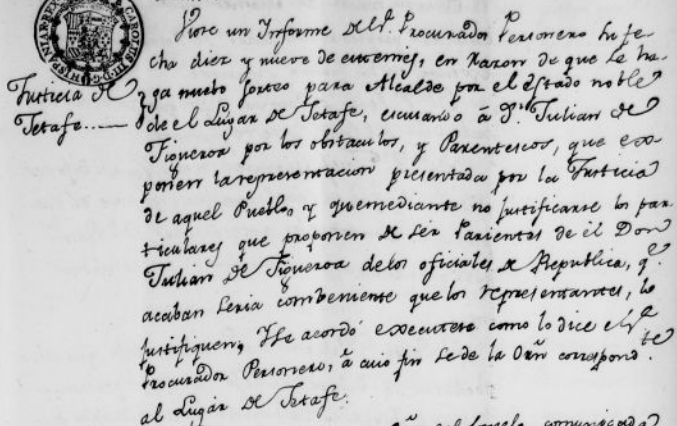 Viose un Informe del Sr. Procurador Personero su fe-
cha diez y nueve de este mes, en Razon de que se ha-
Justicia de
ga nuebo sorteo para Alcalde por el estado noble
Jetafe.....
de el Lugar de Jetafe, escusando á Dn. Julian de
Figueroa por los obstaculos, y Parentescos, que ex-
ponen la representacion presentada por la Justicia
de aquel Pueblo, y que mediante no justificarse los par-
ticulares que proponen de ser Parientes de él Don
Julian de Figueroa de los oficiales de Republica, q.e
acaban seria combeniente que los representantes, lo
justifiquen, Y se acordó executese como lo dice el Sr.
Procurador Personero, á cuio fin se de la Orn correspond.te
al Lugar de Jetafe.
comunicada